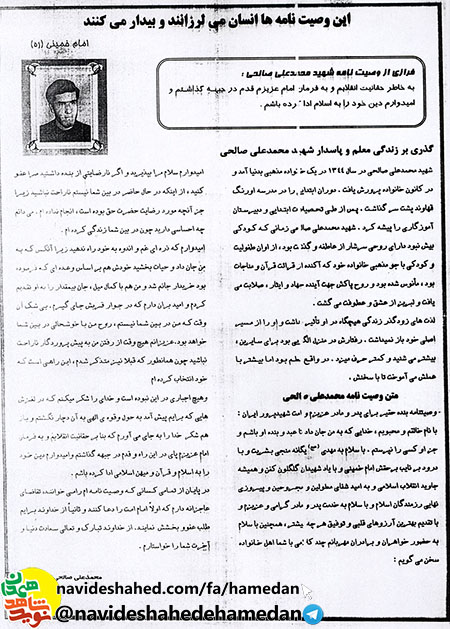 این وصیت نامه ها انسان می لرزانند و بیدار می کنند
امام خمینی (ره)
فرازی از وصیت نامه شهید محمدعلی صالحی :
به خاطر حقانیت انقلابم و به فرمان امام عزیزم قدم در جبهه گذاشتم و
امیدوارم دین خود را به اسلام ادا رده باشم .
گذری بر زندگی معلم و پاسدار شهید محمدعلی صالحی
شهید محمدعلی صالحی در سال ۱۳۴۴ در یک خانواده مذهبی بدنیا آمد و
در کانون خانواده پرورش یافت . دوران ابتدایی را در مدرسه اورنگ
نهاوند پشت سر گذاشت . پس از طی تحصیلات ابتدایی و دبیرستان
آموزگاری را پیشه کرد . شهید محمدعلی صالحی زمانی که کودکی
بیش نبود دارای روحی سرشار از عاطفه و گذشت بود ، از اوان طفولیت
و کودکی با جو مذهبی خانواده خود که آکنده از قرائت قرآن و مناجات
بود ، مأنوس شده بود و روح پاکش جهت آینده جهاد و ایثار ، صلابت می
یافت و لبریز از عشق و عطوفت می گشت .
لذت های زودگذر زندگی هیچگاه در او تأثیر نداشت و او را از مسیر
اصلی خود باز نمیداشت . رفتارش در منزل الگویی بود برای سایرین ،
بیشتر می شنید و کمتر حرف میزد . در واقع معلم بود اما بیشتر با
عملش می آموخت تا با سخنش .
متن وصیت نامه محمدعلی صالحی
وصیتنامه بنده حقیر برای پدر و مادر عزیزم و امت شهیدپرور ایران :
با نام خالقم و محبوبم ، خدایی که به من جان داد تا عبد و بنده او باشم و
جز او کسی را نپرستم . با سلام به مهدی (عج) یگانه منجی بشریت و با
درود بر نایب برحقش امام خمینی و با یاد شهیدان گلگون کفن و همیشه
جاوید انقلاب اسلامی و به امید شفای معلولین و مجروحین و پیروزی
نهایی رزمندگان اسلام و با سلام به خدمت پدر و مادر گرامی و عزیزم و
با تقدیم بهترین آرزوهای قلبی و توفیق هر چه بیشتر ، همچنین با سلام
به حضور خواهران و برادران مهربانم چند کلامی با شما اهل خانواده
سخن می گویم :
امیدوارم سلام مرا بپذیرید و اگر نارضایتی از بنده داشتید مرا عفو
کنید ، از اینکه در حال حاضر در بین شما نیستم ناراحت نباشید زیرا
جز آنچه مورد رضایت حضرت حق بوده است ، انجام نداده ام . می دانم
چه احساسی دارید چون در بین شما زندگی کرده ام .
امیدوارم که ذره ای غم و اندوه به خود راه ندهید زیرا آنکس که به
من جان داد و حیات بخشید خودش هم بر اساس وعده ای که فرموده
بود خریدار جانم شد و من هم با کمال میل ، جان بیمقدار را به او تقدیم
کردم و امیدوارم که در جوار قربش جای گیرم . بی شک آن
وقت که من در بین شما نیستم ، روح من با خوشحالی در بین شما
خواهد بود . عزیزانم هیچ وقت از رفتن من به پیش پروردگار ناراحت
نباشید چون همانطور که قبلا نیز متذکر شدم ، این راهی است که
خود انتخاب کرده ام
وهیچ اجباری در این نبوده است و خدای را شکر میکنم که در لغزش
هایی که برایم پیش آمد به حول و قوه ی الهی به آن دچار نگشتم و باز
هم شکر خدا را به جای می آورم که بنا بر حقانیت انقلابم و به فرمان
امام عزیزم پای در این راه و قدم در جبهه گذاشتم و امیدوارم دین خود
را به اسلام و قرآن و میهن اسلامی ادا کرده باشم .
در پایان از تمامی کسانی که وصیت نامه ام را می خوانند ، تقاضای
عاجزانه دارم که اولاً امام امت را دعا کنند و ثانیاً از خداوند برایم
طلب عفو و بخشش نمایند . از خداوند تبارک و تعالی سعادت دنیا و
آخرت شما را خواستارم .
محمدعلی صالحی
navideshahed.com/fa/hamedan
@navideshahedehamedan
نوید شاهد همدان